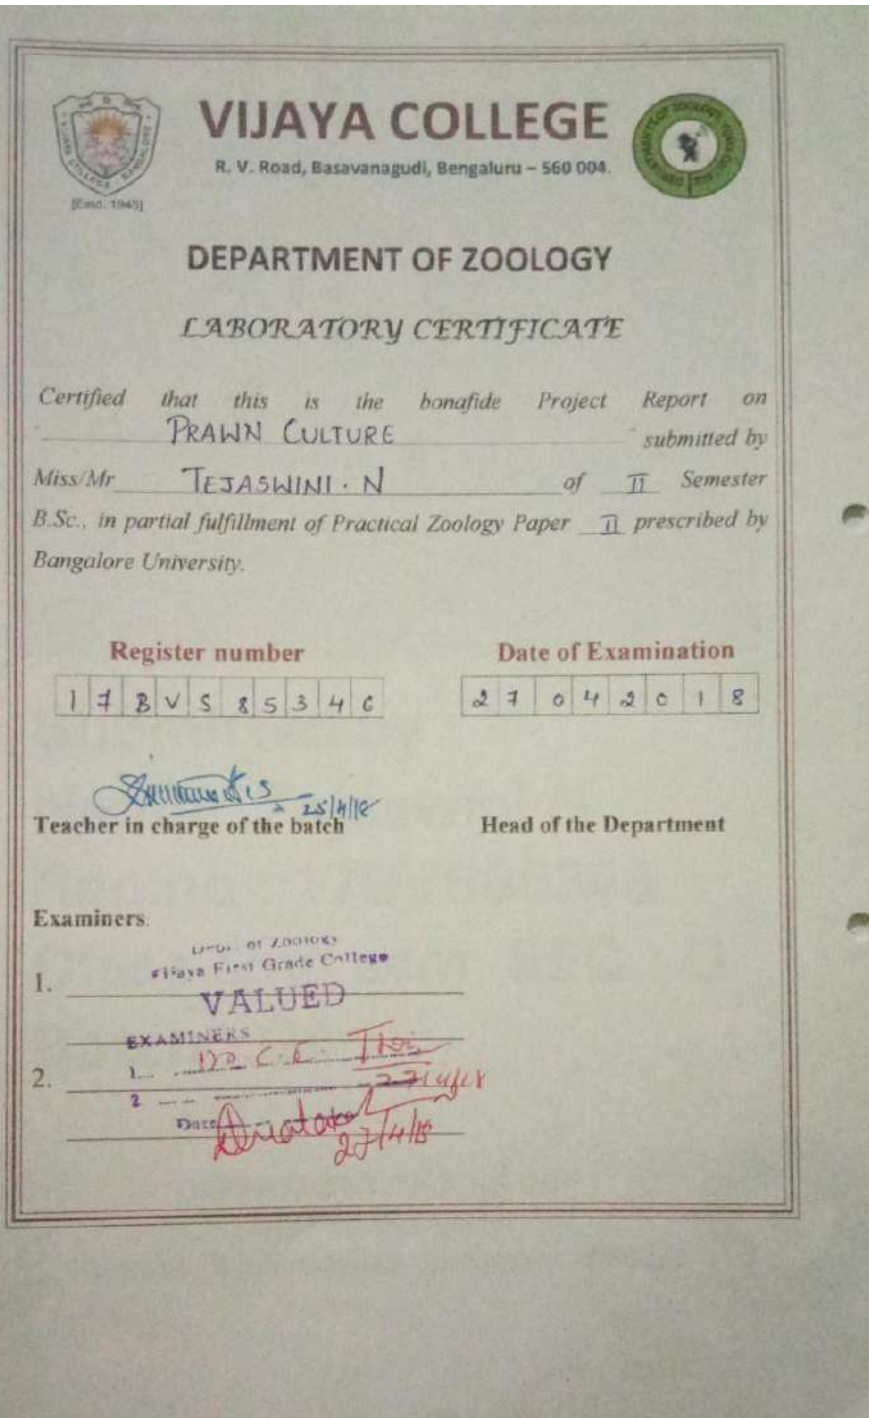 VIJAYA COLLEGE
R. V. Road, Basavanagudi, Bengaluru – 560 004.
[Estd. 1945]
DEPARTMENT OF ZOOLOGY
LABORATORY CERTIFICATE
Certified that this is the bonafide Project Report on
PRAWN CULTURE submitted by
Miss/Mr TEJASWINI. N of II Semester
B.Sc., in partial fulfillment of Practical Zoology Paper II prescribed by
Bangalore University.
Register number Date of Examination
17BVS8534 27042018
25/4/18
Teacher in charge of the batch Head of the Department
Examiners.
Dept. of Zoology
Vijaya First Grade College
1.
VALUED
EXAMINERS
1
2.
27/4/18
2
Date
27/4/18